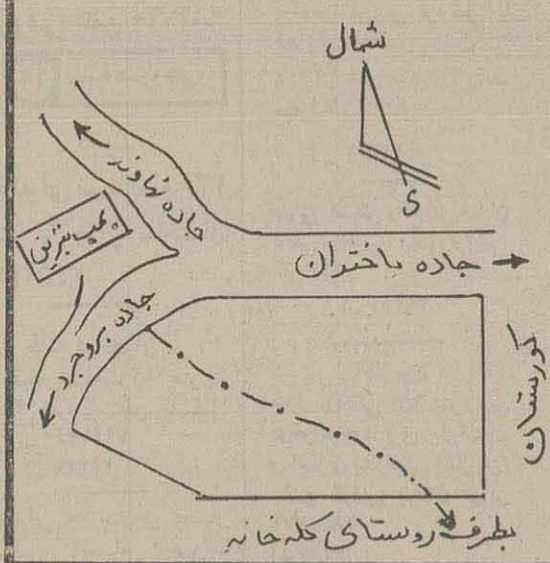 شمال
S
جاده نهاوند
پمپ بنزین
جاده باختران
جاده بروجرد
گورستان
بطرف روستای کله خانه